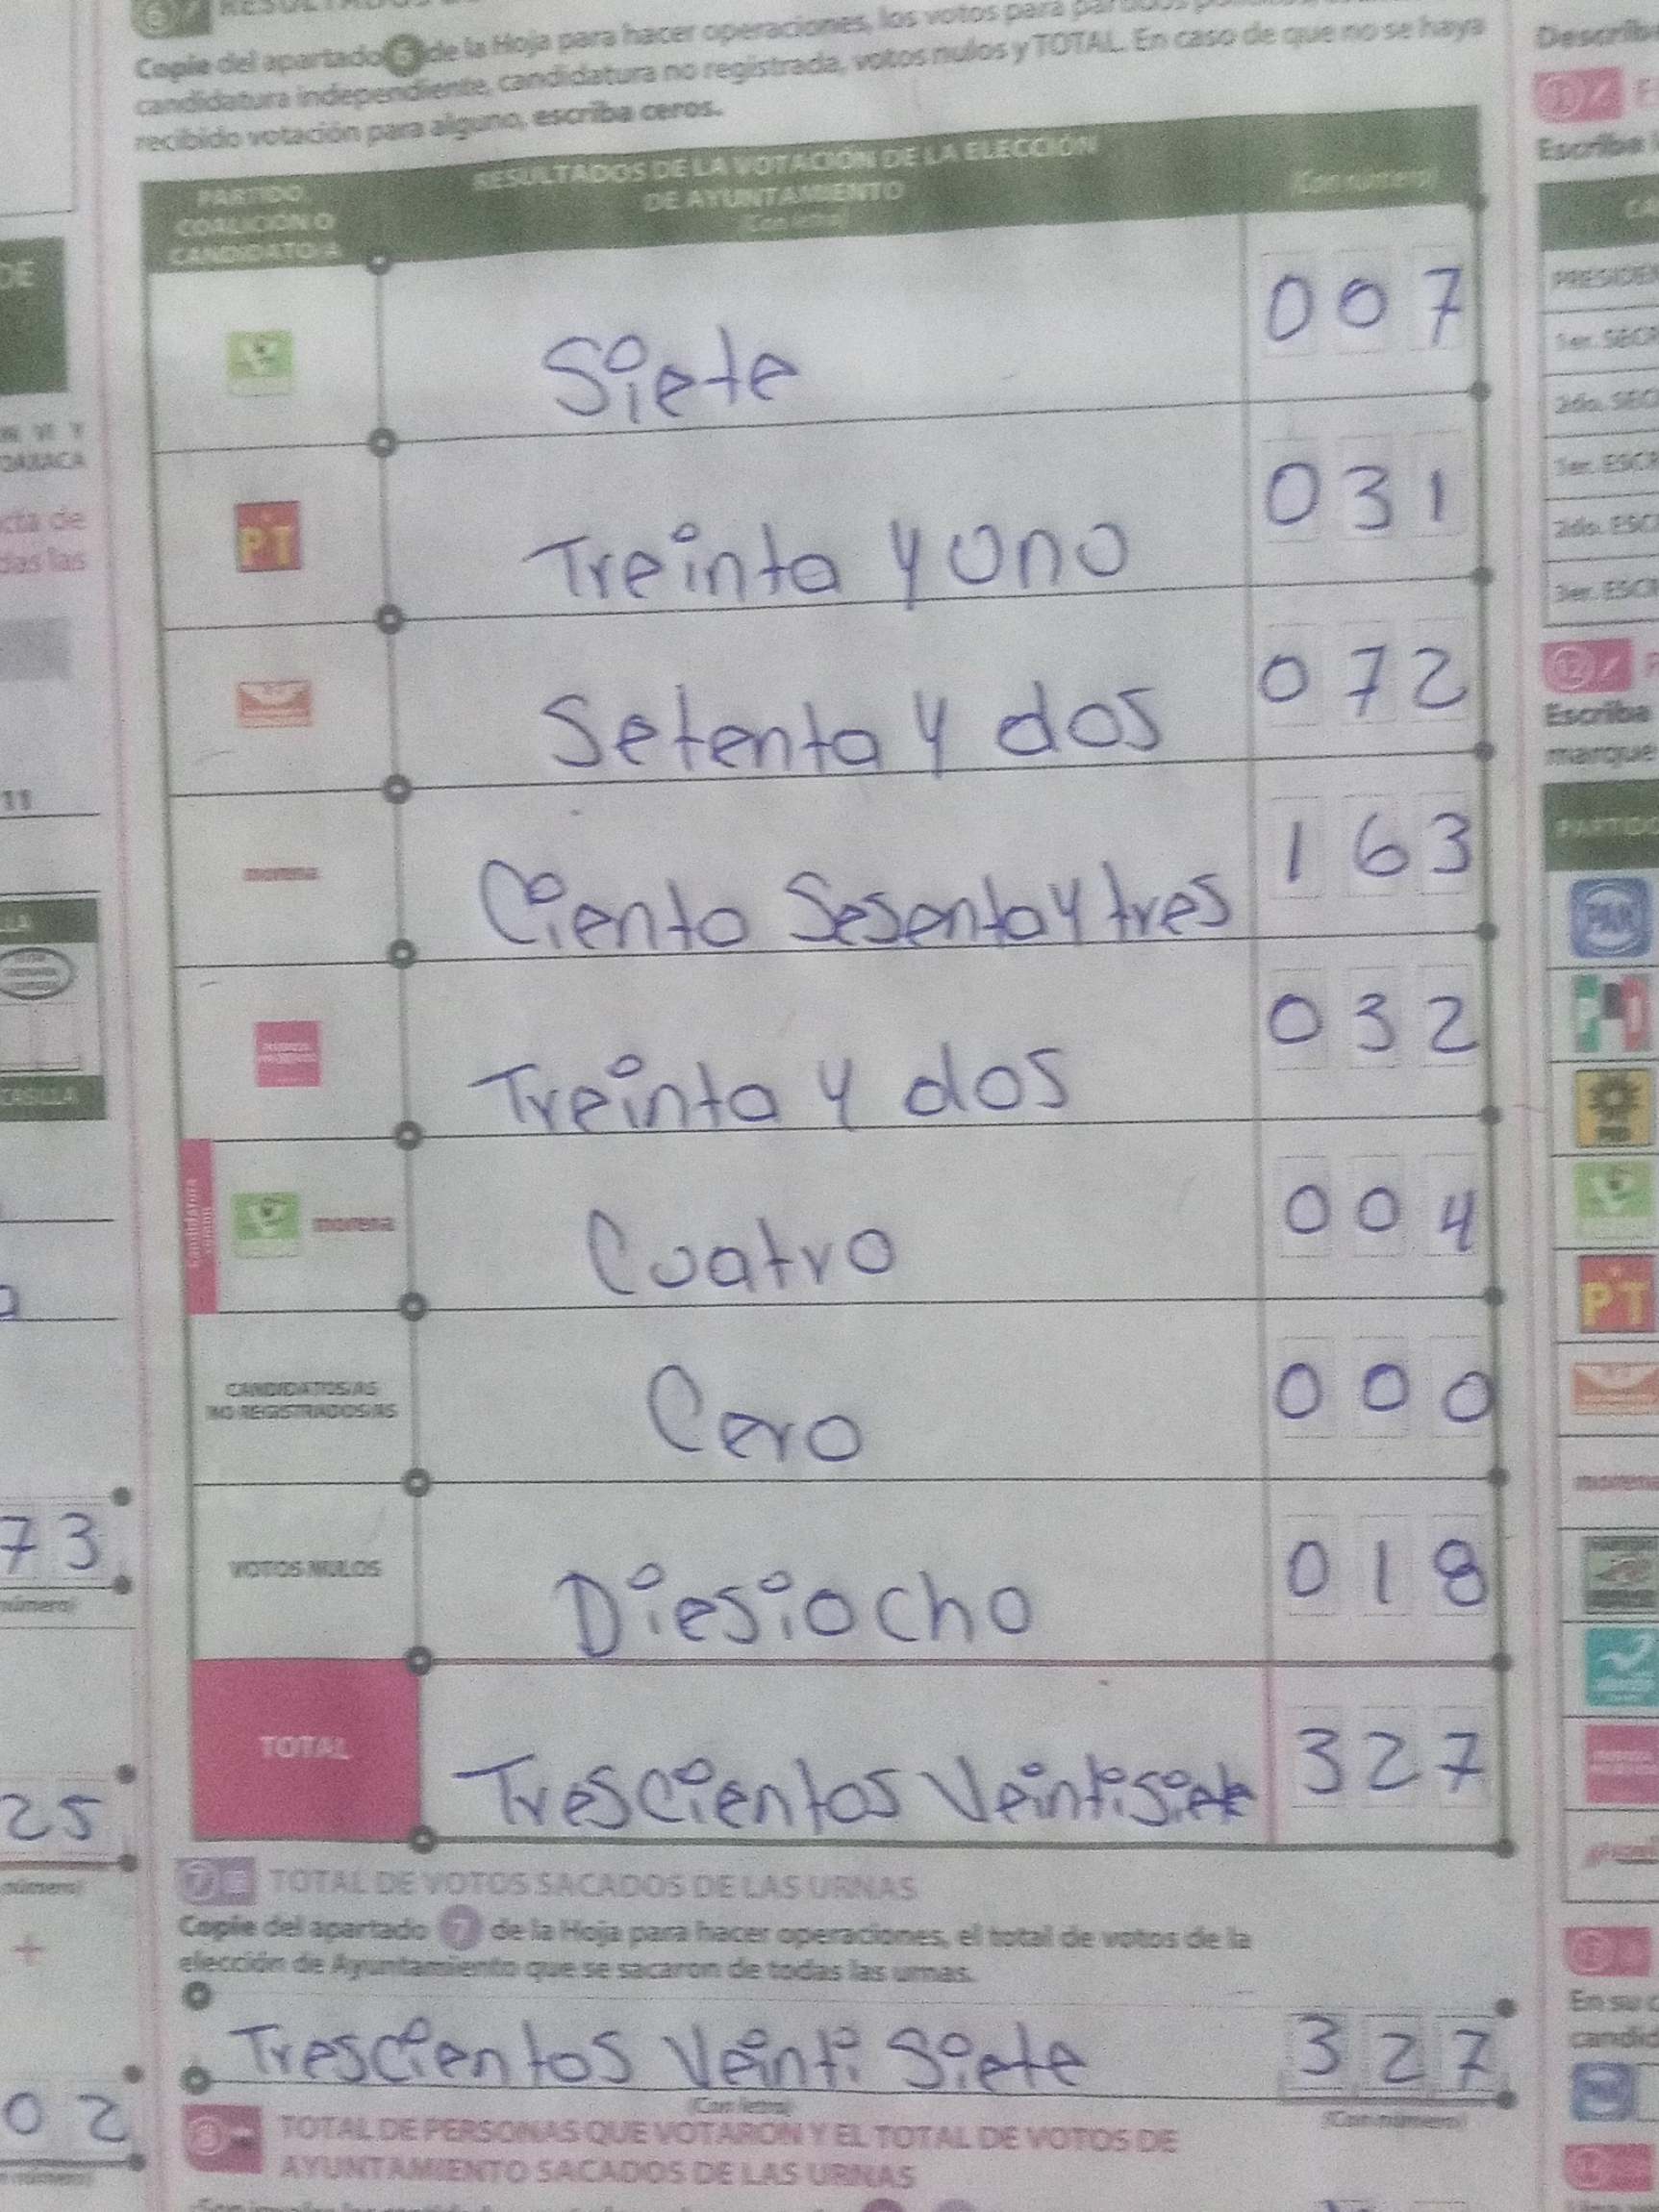 Copie del apartado 6 de la Hoja para hacer operaciones, los votos para
candidatura independiente, candidatura no registrada, votos nulos y TOTAL. En caso de que no se haya
recibido votación para alguno, escriba ceros.
PARTIDO, COALICIÓN O CANDIDATO/A
RESULTADOS DE LA VOTACIÓN DE LA ELECCIÓN
DE AYUNTAMIENTO
(Con letra)
(Con número)
Siete 007
PT Treinta y uno 031
Setenta y dos 072
morena Ciento Sesenta y tres 163
Treinta y dos 032
morena Cuatro 004
CANDIDATOS/AS
NO REGISTRADOS/AS
Cero 000
VOTOS NULOS Diesiocho 018
TOTAL Trescientos Veintisiete 327
7 TOTAL DE VOTOS SACADOS DE LAS URNAS
Copie del apartado 7 de la Hoja para hacer operaciones, el total de votos de la
elección de Ayuntamiento que se sacaron de todas las urnas.
Trescientos Veinti Siete 327
(Con letra) (Con número)
8 TOTAL DE PERSONAS QUE VOTARON Y EL TOTAL DE VOTOS DE
AYUNTAMIENTO SACADOS DE LAS URNAS
DE
OAXACA
11
CASILLA
73
25
+
02
Escriba
marque
PAN
PRI
PRD
PT
morena